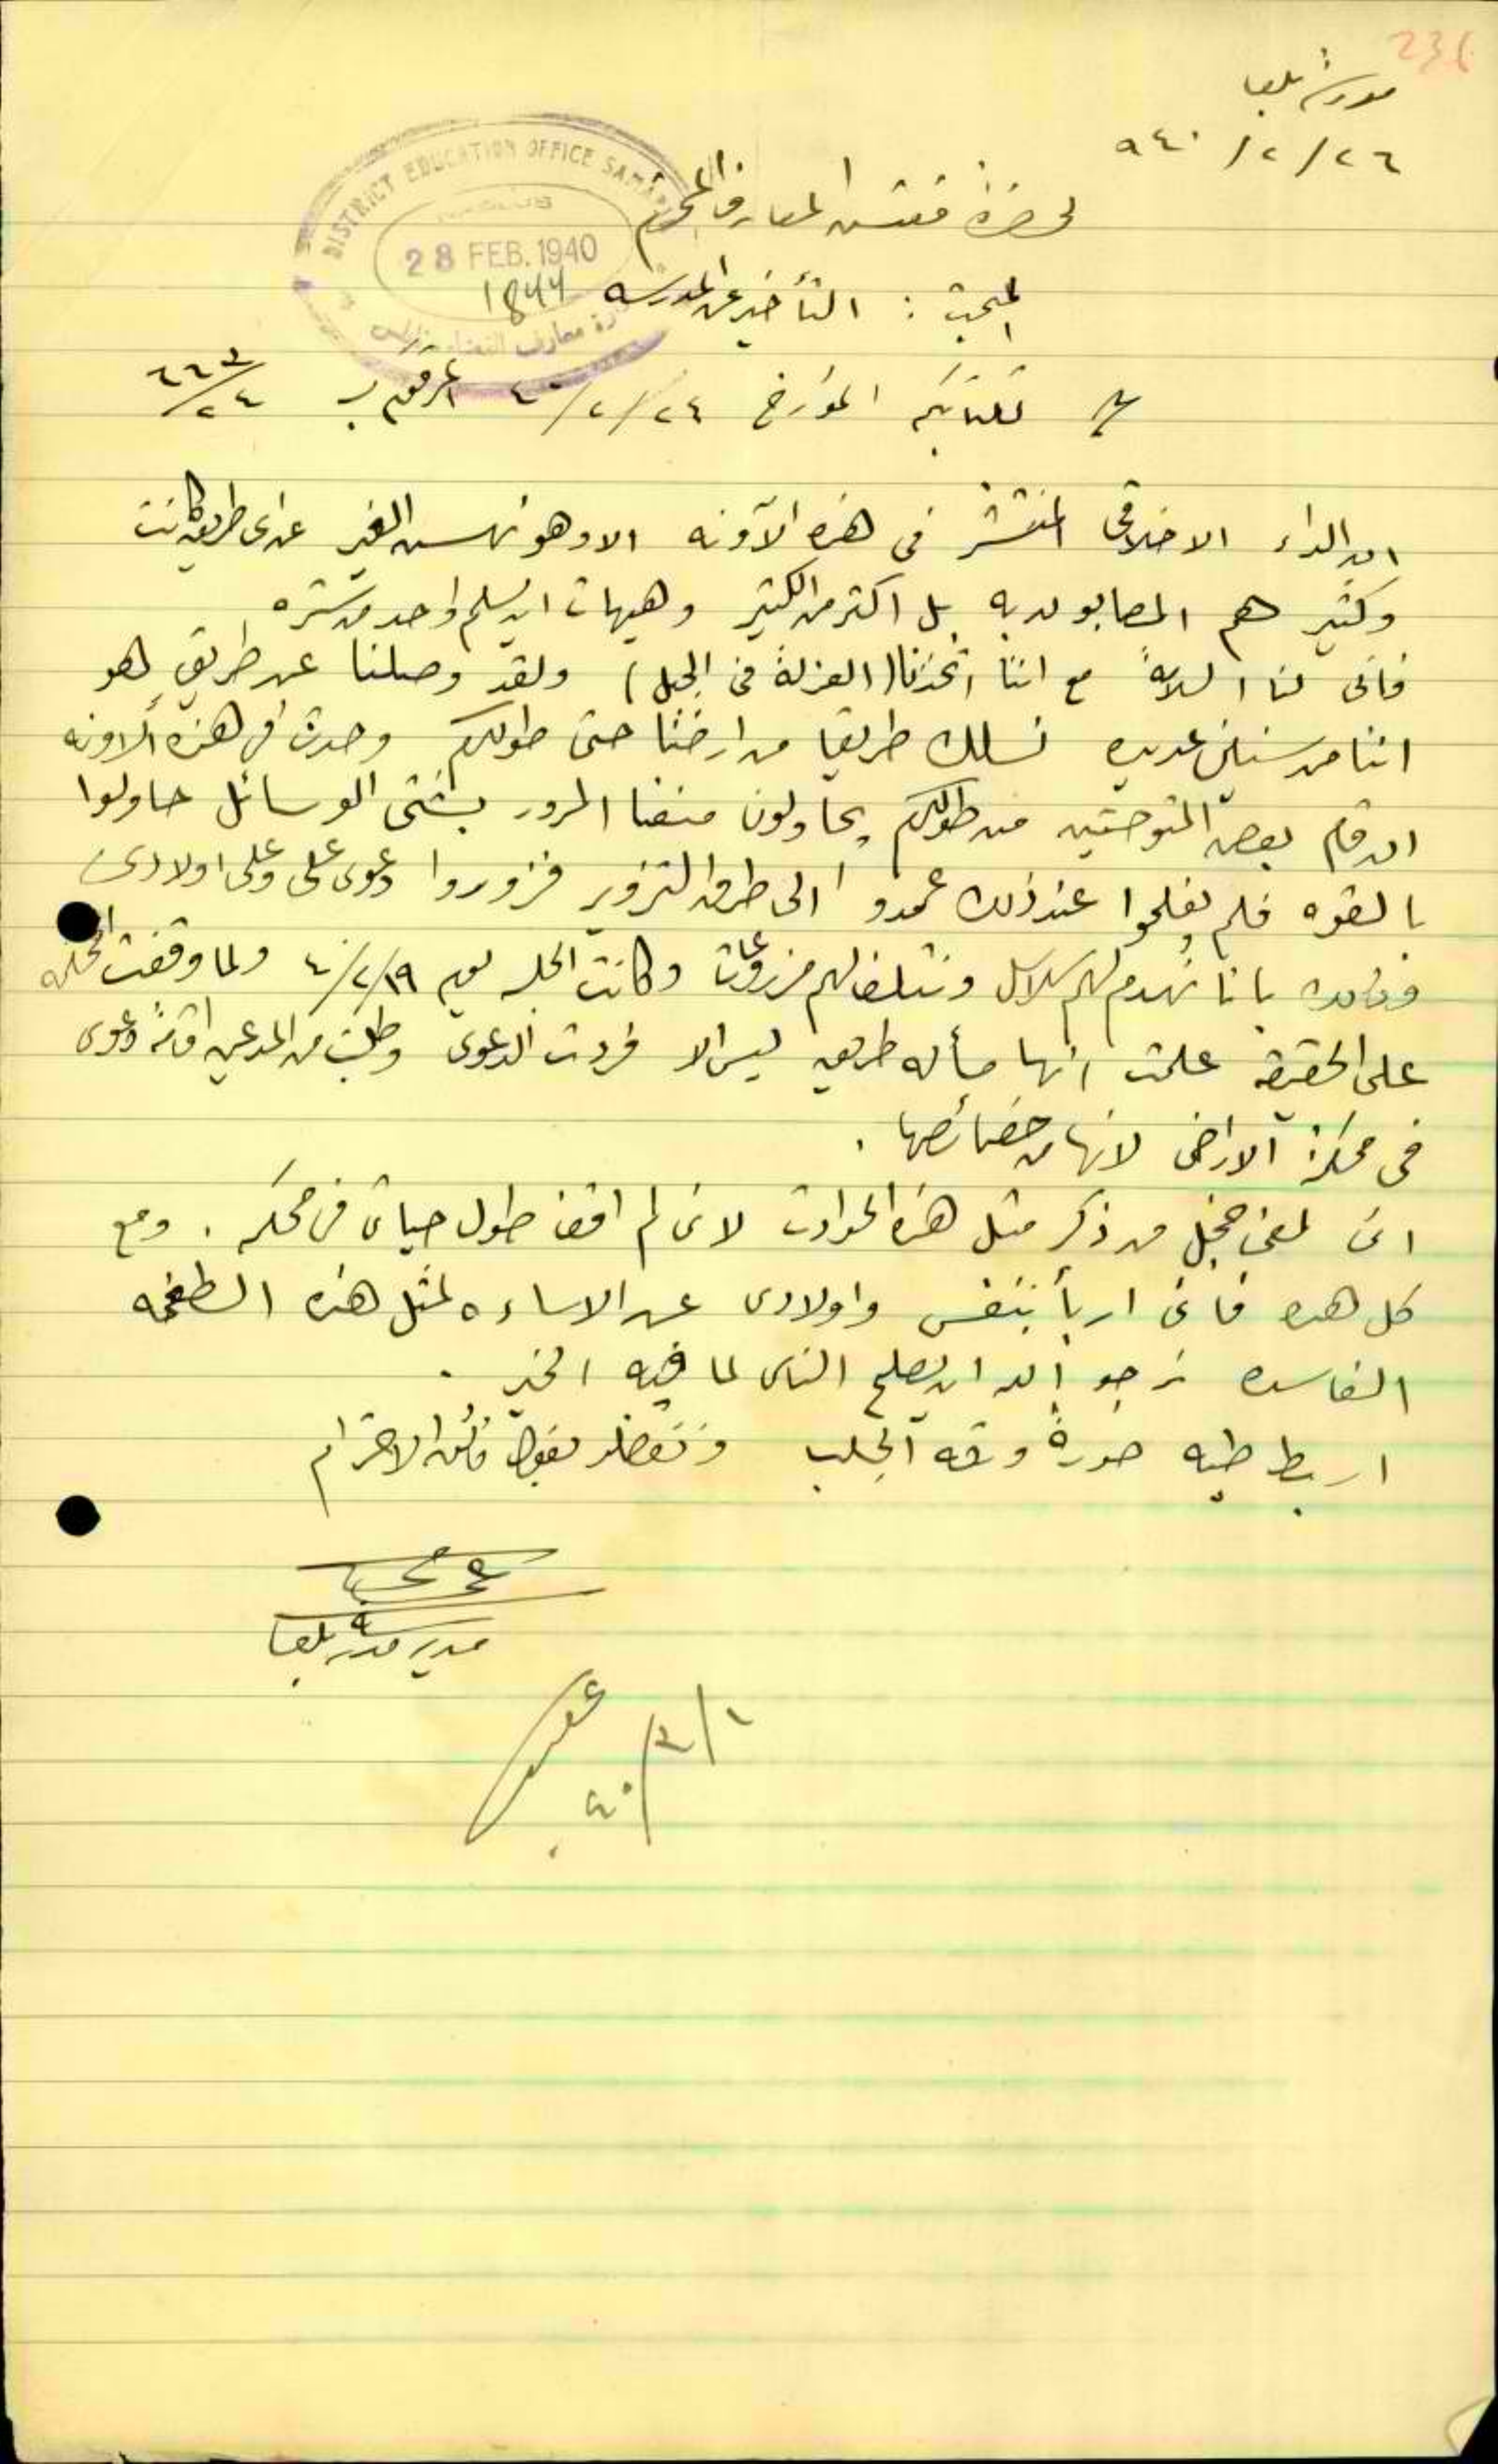 236
مدرسة بلعا
٢٦/٢/٩٤٠
لحضرة مفتش المعارف المحترم
DISTRICT EDUCATION OFFICE SAMARIA
NABLUS
28 FEB. 1940
1844
المبحث : التأخير عن المدرسه
كتابكم المؤرخ ٢٤/٢/٤٠ المرقوم ب ٦٦٣/٢٤
ان الداء الاخلاقي المنتشر في هذه الآونه الا وهو نهش الغير عن اي طريق كانت
وكثير هم المصابون به بل اكثر من الكثير وهيهات ان يسلم واحد من شره
فانى لنا السلامة مع اننا اتخذنا (العزلة في الجبل) ولقد وصلنا عن طريق هو
اننا من سنين عديده نسلك طريقا من ارضنا حتى طولكرم وحدث في هذه الاونه
ان قام بعض المتوحشين من طولكرم يحاولون منعنا المرور بشتى الوسائل حاولوا
بالقوه فلم يفلحوا عند ذلك عمدوا الى طرق التزوير فزوروا دعوى علي وعلى اولادي
بانا نهدم لهم سلاسل ونتلف لهم مزروعات وكانت الجلسه يوم ١٩/٢/٤٠ ولما وقفت المحكمه
على الحقيقه علمت انها مسأله طريق ليس الا فردت الدعوى وطلبت من المدعين اقامة دعوى
في محكمة الاراضي لانها من خصائصها .
اني لفي خجل من ذكر مثل هذه الحوادث لاني لم اقف طول حياتي في محكمه . ومع
كل هذه فاني اربأ بنفسي واولادي عن الاساءه لمثل هذه الطغمه
الفاسده نرجو الله ان يصلح الناس لما فيه الخير .
اربط طيه صورة ورقه الجلب وتفضلو بقبول فائق الاحترام
مدير مدرسة بلعا
١/٣/٤٠